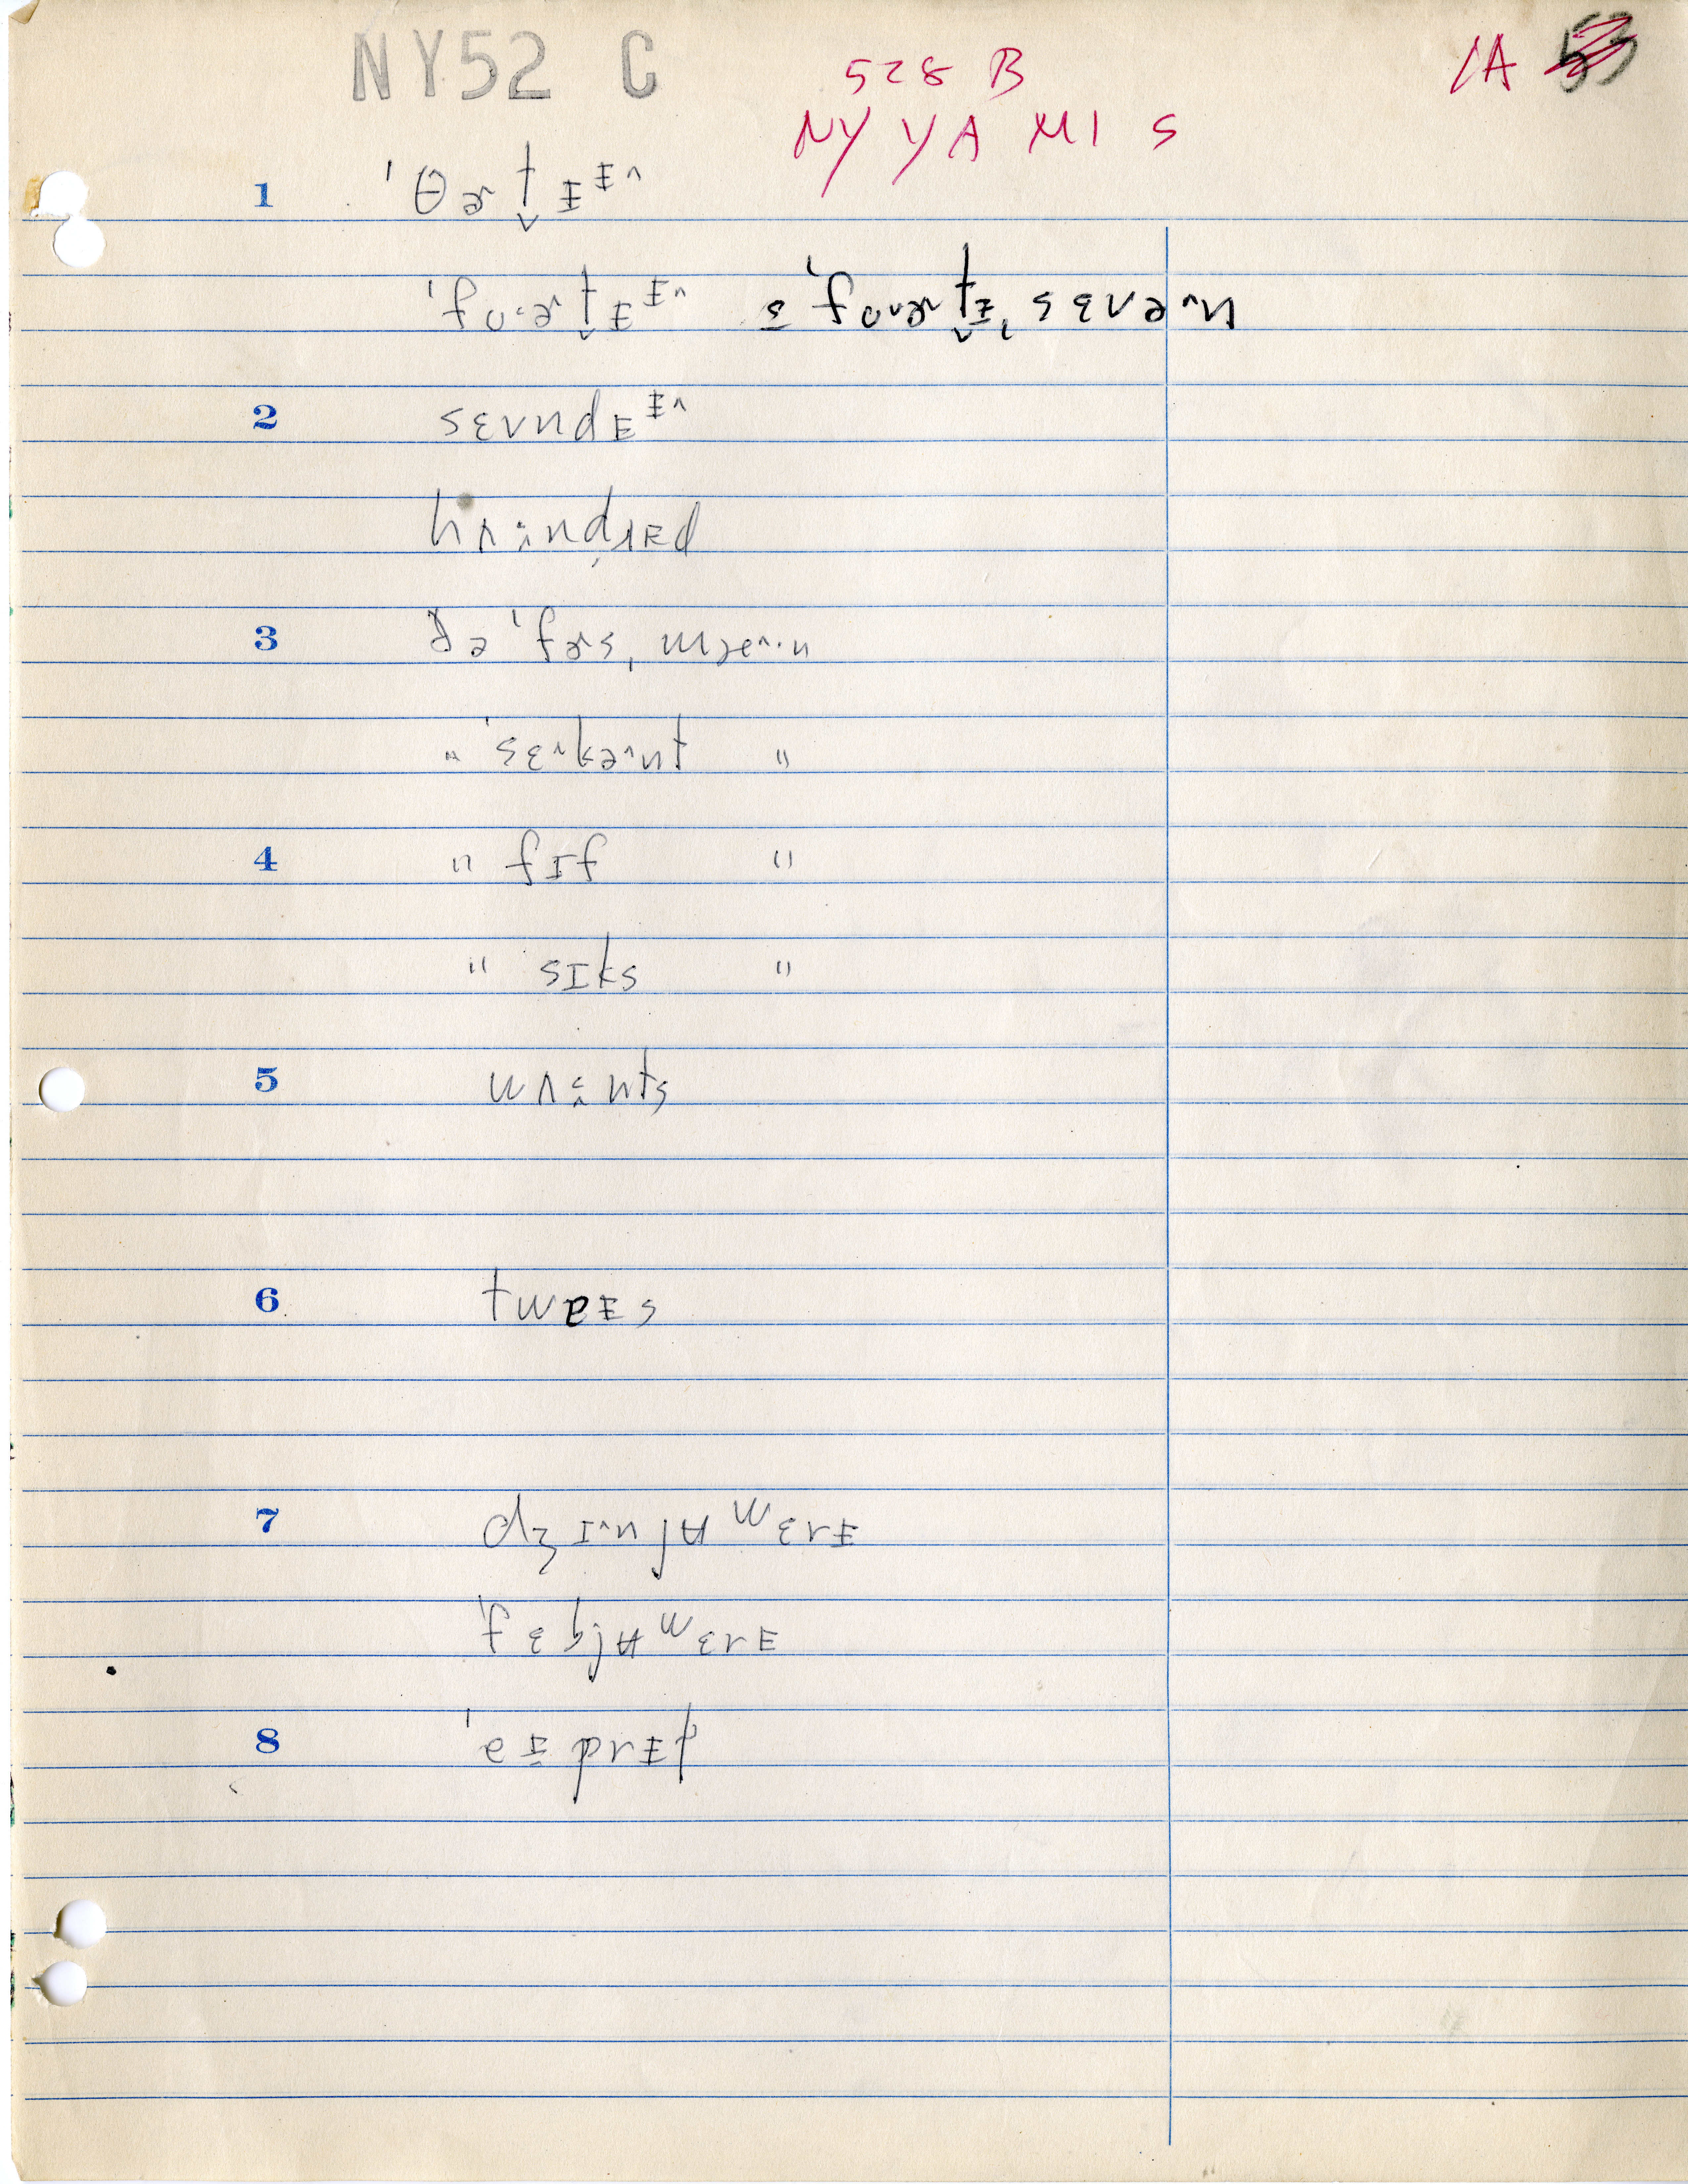 NY52 C
528 B
1A 53
NY YA MI S
1 ˈθɚt̬ɪɪ^
ˈfoɚt̬ɪɪ^ ˈfoɚt̬ɪˌsɛvən
2 sɛvndɪɪ^
hʌndrɪd
3 ðə ˈfɚs, mæ^·n
" ˈsɛkənt "
4 " fɪf "
" sɪks "
5 wʌnts
6 twɐɪs
7 dʒɪ^njʉwɛrɪ
ˈfɛbjʉwɛrɪ
8 ˈeɪprɪl